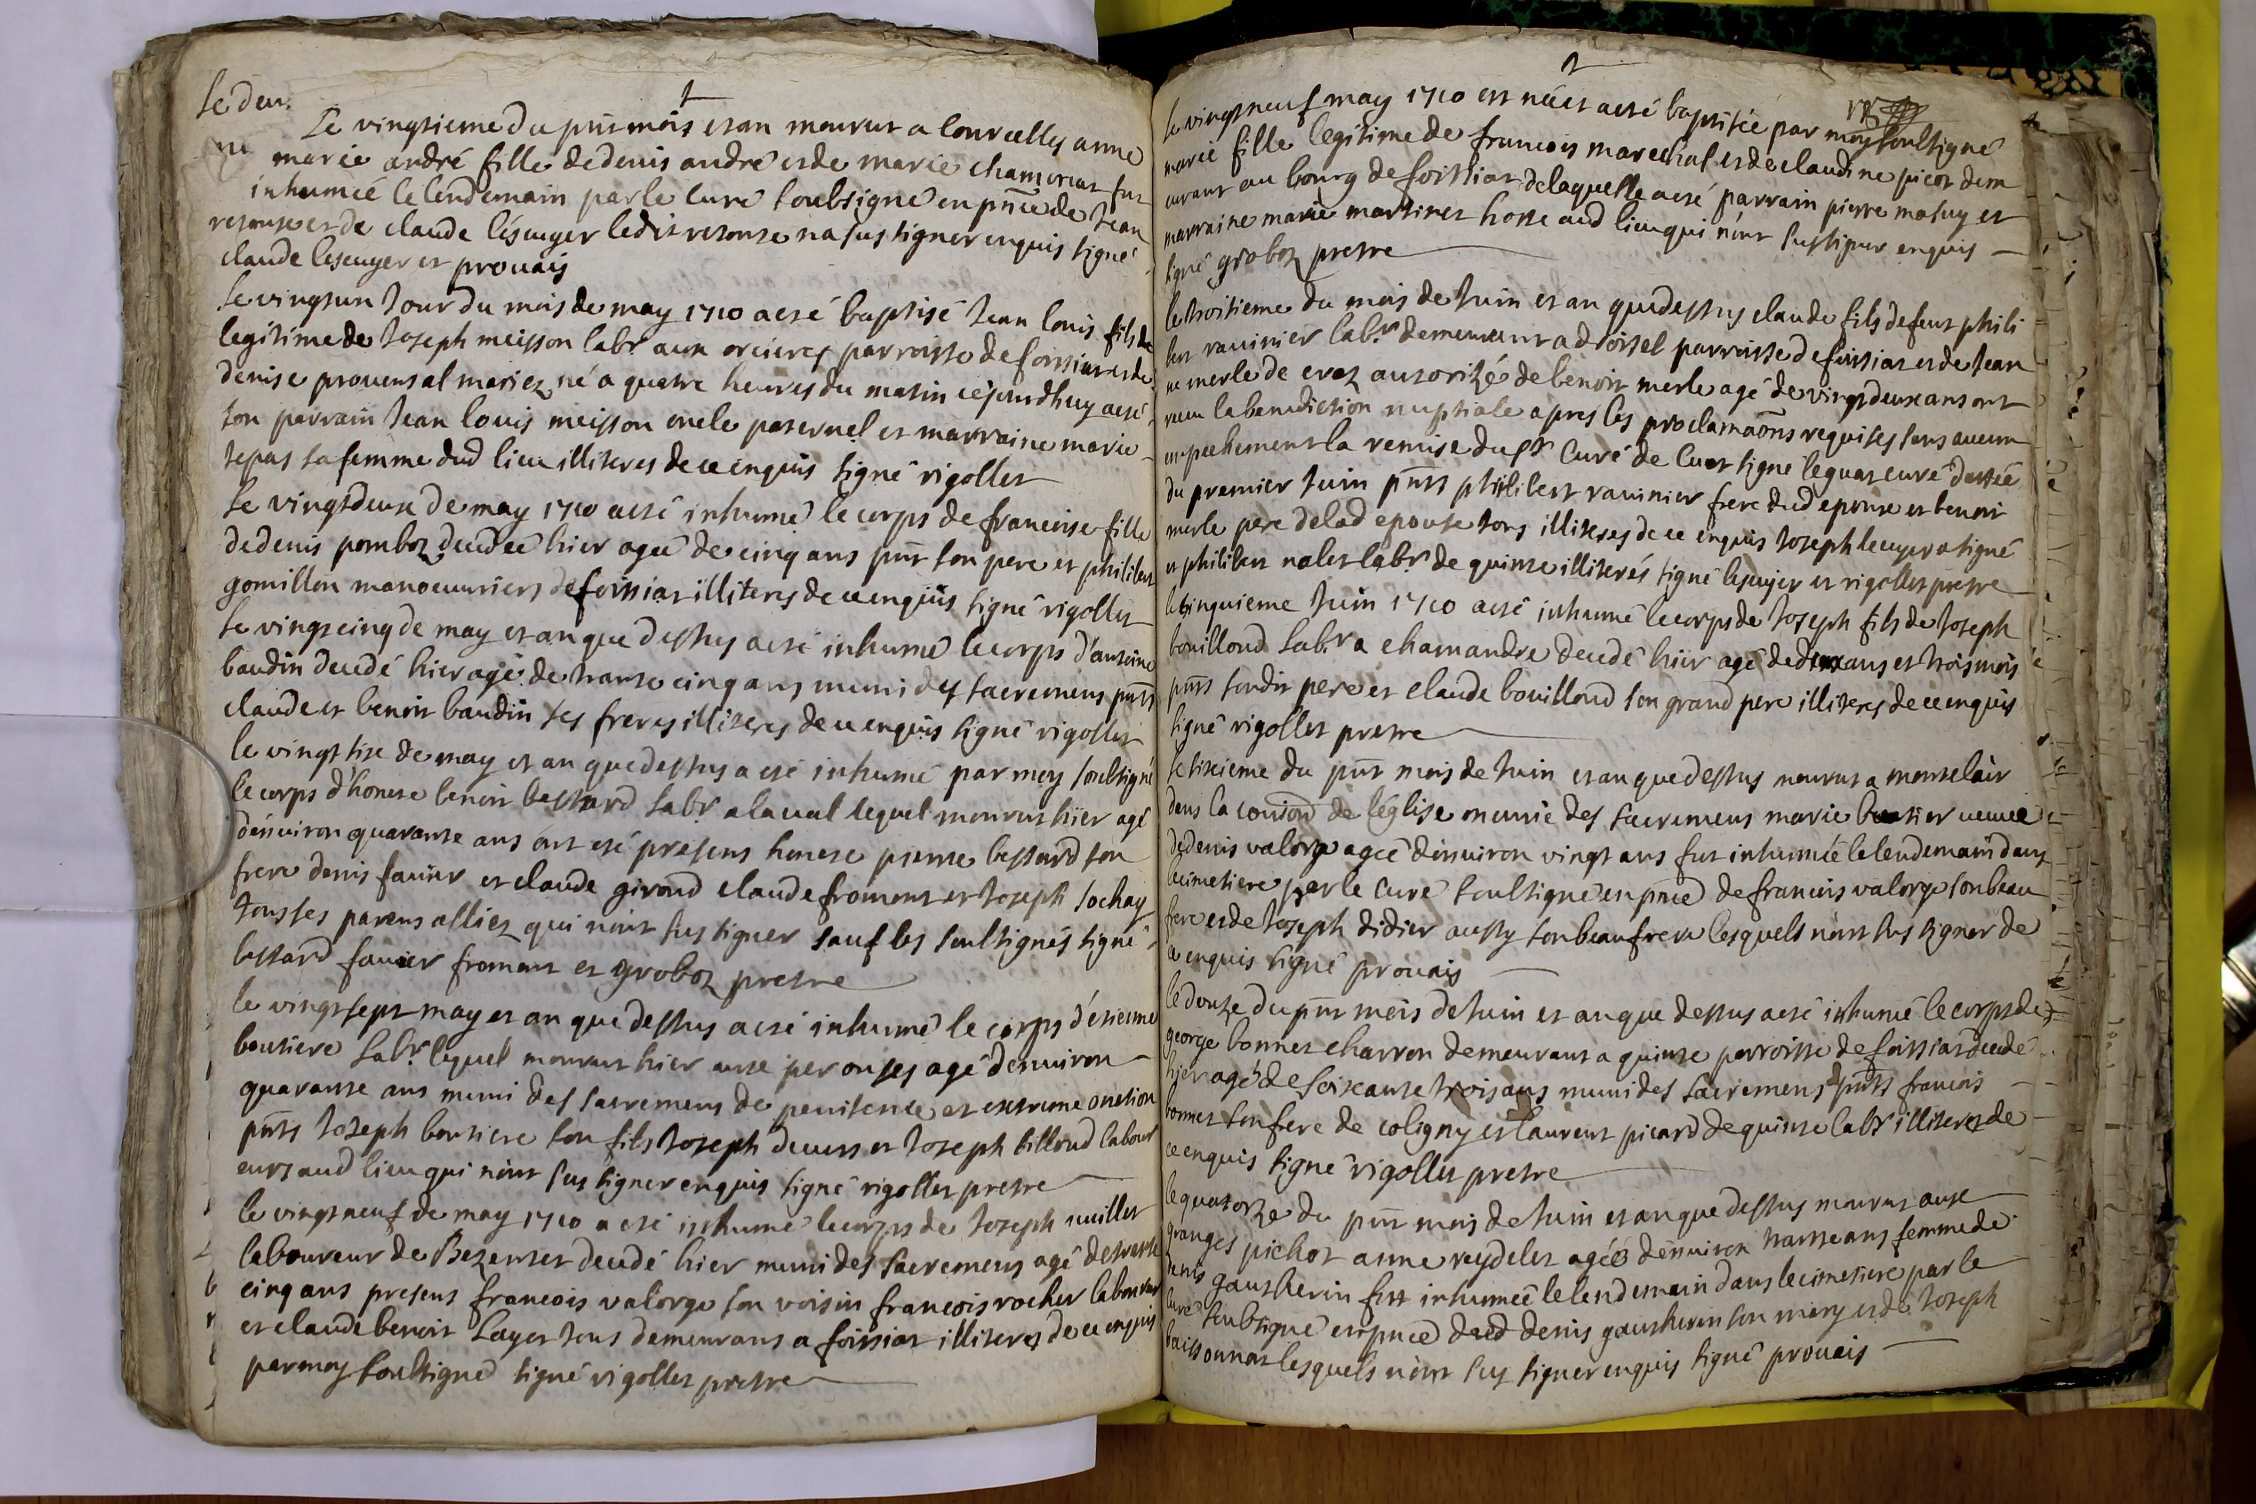 le deu.
Le vingtieme du pnt mois et an mourut a courcelles anne
marie andré fille de denis andré et de marie chamonat fut
inhumée le lendemain par le curé soubsigné en pnce de Jean
retouse et de claude l'ésenyer ledit retouse na sus signer enquis signé
claude lesenyer et prouais
Le vingtun Jour du mois de may 1710 a eté baptisé Jean louis fils de
legitime de Joseph meisson labr aux orcieres parroisse de foissiat et de
denise prouensal mariez né a quatre heures du matin cejourdhuy a eté
son parrain Jean louis meisson oncle paternel et marraine marie
sa femme dud lieu illiteres de ce enquis signé rigollet
Le vingtdeux de may 1710 a eté inhumé le corps de francoise fille
de denis pomboz decedée hier agée de cinq ans pnt son pere et philibert
gomillon manoeuuriers de foissiat illiteres de ce enquis signé rigollet
Le vingtcinq de may et an que dessus a eté inhumé le corps d'antoine
baudin decedé hier agé de trante cinq ans muni des sacremens pnts
claude et benoit baudin ses freres illiteres de ce enquis signé rigollet
le vingt sixe de may et an que dessus a eté inhumé par moy soussigné
le corps d'honete benoit bessard labr a laual lequel mourut hier agé
d'enuiron quarante ans ont eté presens honete pierre bessard son
frere denis fauier et claude giroud claude froment et Joseph sochay
tous ses parens alliez qui n'ont sus signer sauf les soussignés signé
bessard fauier fromant et groboz pretre
le vingtsept may et an que dessus a eté inhumé le corps d'étienne
boutiere labr lequel mourut hier aux perouses agé denuiron
quarante ans muni des sacremens de penitence et extreme onction
pnts Joseph boutiere son fils Joseph deuers et Joseph billoud labour
eurs aud lieu qui n'ont sus signer enquis signé rigollet pretre
le vingtneuf de may 1710 a eté inhumé le corps de Joseph uuillet
laboureur de Bezentet decedé hier muni des sacremens agé de trente
cinq ans presens francois valorge son voisin francois rocher laboureur
et claude benoit Layet tous demeurans a foissiat illiteres de ce enquis
par moy soussigné signé rigollet pretre
le vingtneuf may 1710 est née et a eté baptisée par moy soussigné
marie fille legitime de francois marechal et de claudine picot dem
eurant au bourg de foissiat de laquelle a eté parrain pierre matuy et
marraine marie martinet hosse aud lieu qui n'ont sus signer enquis
signé groboz pretre
le troisieme du mois de Juin et an que dessus claude fils de feut phili
bert rauinier labr demeurant a droissel parroisse de foissiat et de Jean
ne merle de autorizé de benoit merle agé de vingt deux ans ont
recu la benediction nuptiale apres les proclamaõns requises sans aucun
empechement la remise du sr Curé de Cuet signé leguat curé dattée
du premier Juin pnts philibert rauinier frere dud epoux et benoit
merle pere de lad epouse tous illiteres de ce enquis Joseph lecuyer a signé
et philibert nalet labr de quinte illiterés signé lesuyer et rigollet pretre
le cinquieme Juin 1710 a eté inhumé le corps de Joseph fils de Joseph
bouilloud labr a chamandre decedé hier agé de deux ans et trois mois
pnts sondit pere et claude bouilloud son grand pere illiteres de ce enquis
signé rigollet pretre
Le sixieme du pnt mois de Juin et an que dessus mourut a montclair
dans la de l'église munie des sacremens marie veuue
de denis valorge agée d'enuiron vingt ans fut inhumée le lendemain dans
le cimetiere par le curé soussigné en pnce de francois valorge son beau
frere et de Joseph didier aussy son beaufrere lesquels n'ont sus signer de
ce enquis signé prouais
le douze du pnt mois de Juin et an que dessus a eté inhumé le corps de
george bonnet charron demeurant a quinte parroisse de foissiat decedé
hier agé de soixante trois ans muni des sacremens pnts francois
bonnet son frere de coligny et laurent picard de quinte labr illiteres de
ce enquis signé rigollet pretre
le quatorze du pnt mois de Juin et an que dessus mourut aux
granges pichot anne reydelet agée d'enuiron trante ans femme de
denis gautherin fut inhumée le lendemain dans le cimetiere par le
curé soubsigné en pnce dud denis gautherin son mary et de Joseph
buissonnat lesquels n'ont sus signer enquis signé prouais